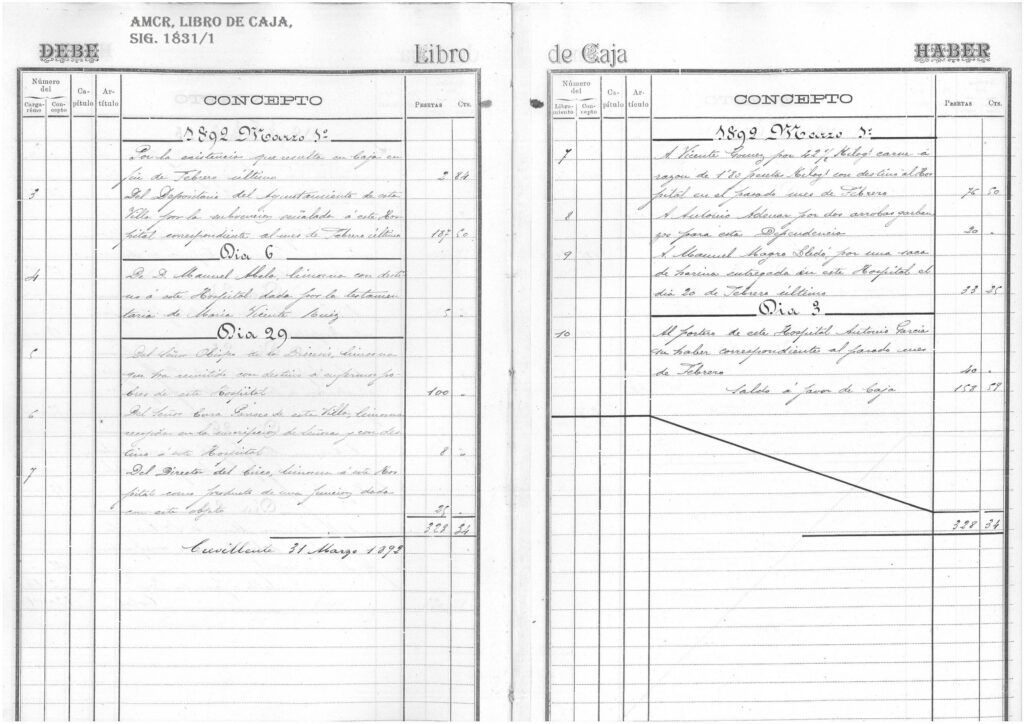 AMCR, LIBRO DE CAJA,
SIG. 1831/1
DEBE
Libro
Número
del
Cargaréme
Concepto
Capítulo
Artículo
CONCEPTO
PESETAS
CTS.
1892 Marzo 1º
Por la existencia que resulta en Caja en
fin de Febrero último 2 84
3 Del Depositario del Ayuntamiento de esta
Villa por la subvención señalada á este Hos-
pital correspondiente al mes de Febrero último 187 50
Dia 6
4 De D. Manuel limosna con desti-
no á este Hospital dada por la testamen-
taria de Maria Vicente Ruiz 5 "
Dia 29
5 Del Señor Obispo de la Diócesis, limosna
que ha remitido con destino á enfermos po-
bres de este Hospital 100 "
6 Del Señor Cura Parroco de esta Villa, limosna
recogida en la de Señoras y con des-
tino á este Hospital 8 "
7 Del Director del Circo, limosna á este Hos-
pital como producto de una funcion dada
con este objeto 25 "
328 34
Crevillente 31 Marzo 1892
de Caja
HABER
Número
del
Libramiento
Concepto
Capítulo
Artículo
CONCEPTO
PESETAS
CTS.
1892 Marzo 1º
7 A Vicente Gomez por 42 ½ Kilogs carne á
razon de 1'80 pesetas Kilogo con destino al Hos-
pital en el pasado mes de Febrero 76 50
8 A Antonio Adsuar por dos arrobas garban-
zos para esta Dependencia 20 "
9 A Manuel Magro Lledó, por una saca
de harina entregada en este Hospital el
dia 20 de Febrero último 33 25
Dia 3
10 Al portero de este Hospital Antonio Garcia
su haber correspondiente al pasado mes
de Febrero 40 "
Saldo á favor de Caja 158 59
328 34